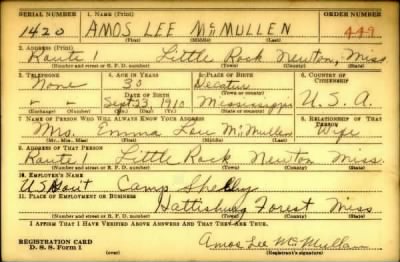 SERIAL NUMBER 1. NAME (Print) ORDER NUMBER
1420 AMOS LEE McMULLEN 449
(First) (Middle) (Last)
2. ADDRESS (Print)
Route 1 Little Rock Newton, Miss
(Number and street or R. F. D. number) (Town) (County) (State)
3. TELEPHONE 4. AGE IN YEARS 5. PLACE OF BIRTH 6. COUNTRY OF CITIZENSHIP
None 30 Decatur
DATE OF BIRTH (Town or county)
- - Sept 23, 1910 Mississippi U.S.A.
(Exchange) (Number) (Mo.) (Day) (Yr.) (State or country)
7. NAME OF PERSON WHO WILL ALWAYS KNOW YOUR ADDRESS 8. RELATIONSHIP OF THAT PERSON
Mrs. Emma Lou McMullen Wife
(Mr., Mrs., Miss) (First) (Middle) (Last)
9. ADDRESS OF THAT PERSON
Route 1 Little Rock Newton Miss.
(Number and street or R. F. D. number) (Town) (County) (State)
10. EMPLOYER'S NAME
US Gov't Camp Shelby
11. PLACE OF EMPLOYMENT OR BUSINESS
Hattisburg Forest Miss
(Number and street or R. F. D. number) (Town) (County) (State)
I AFFIRM THAT I HAVE VERIFIED ABOVE ANSWERS AND THAT THEY ARE TRUE.
REGISTRATION CARD
D. S. S. Form 1 Amos Lee McMullan
(over) (Registrant's signature)